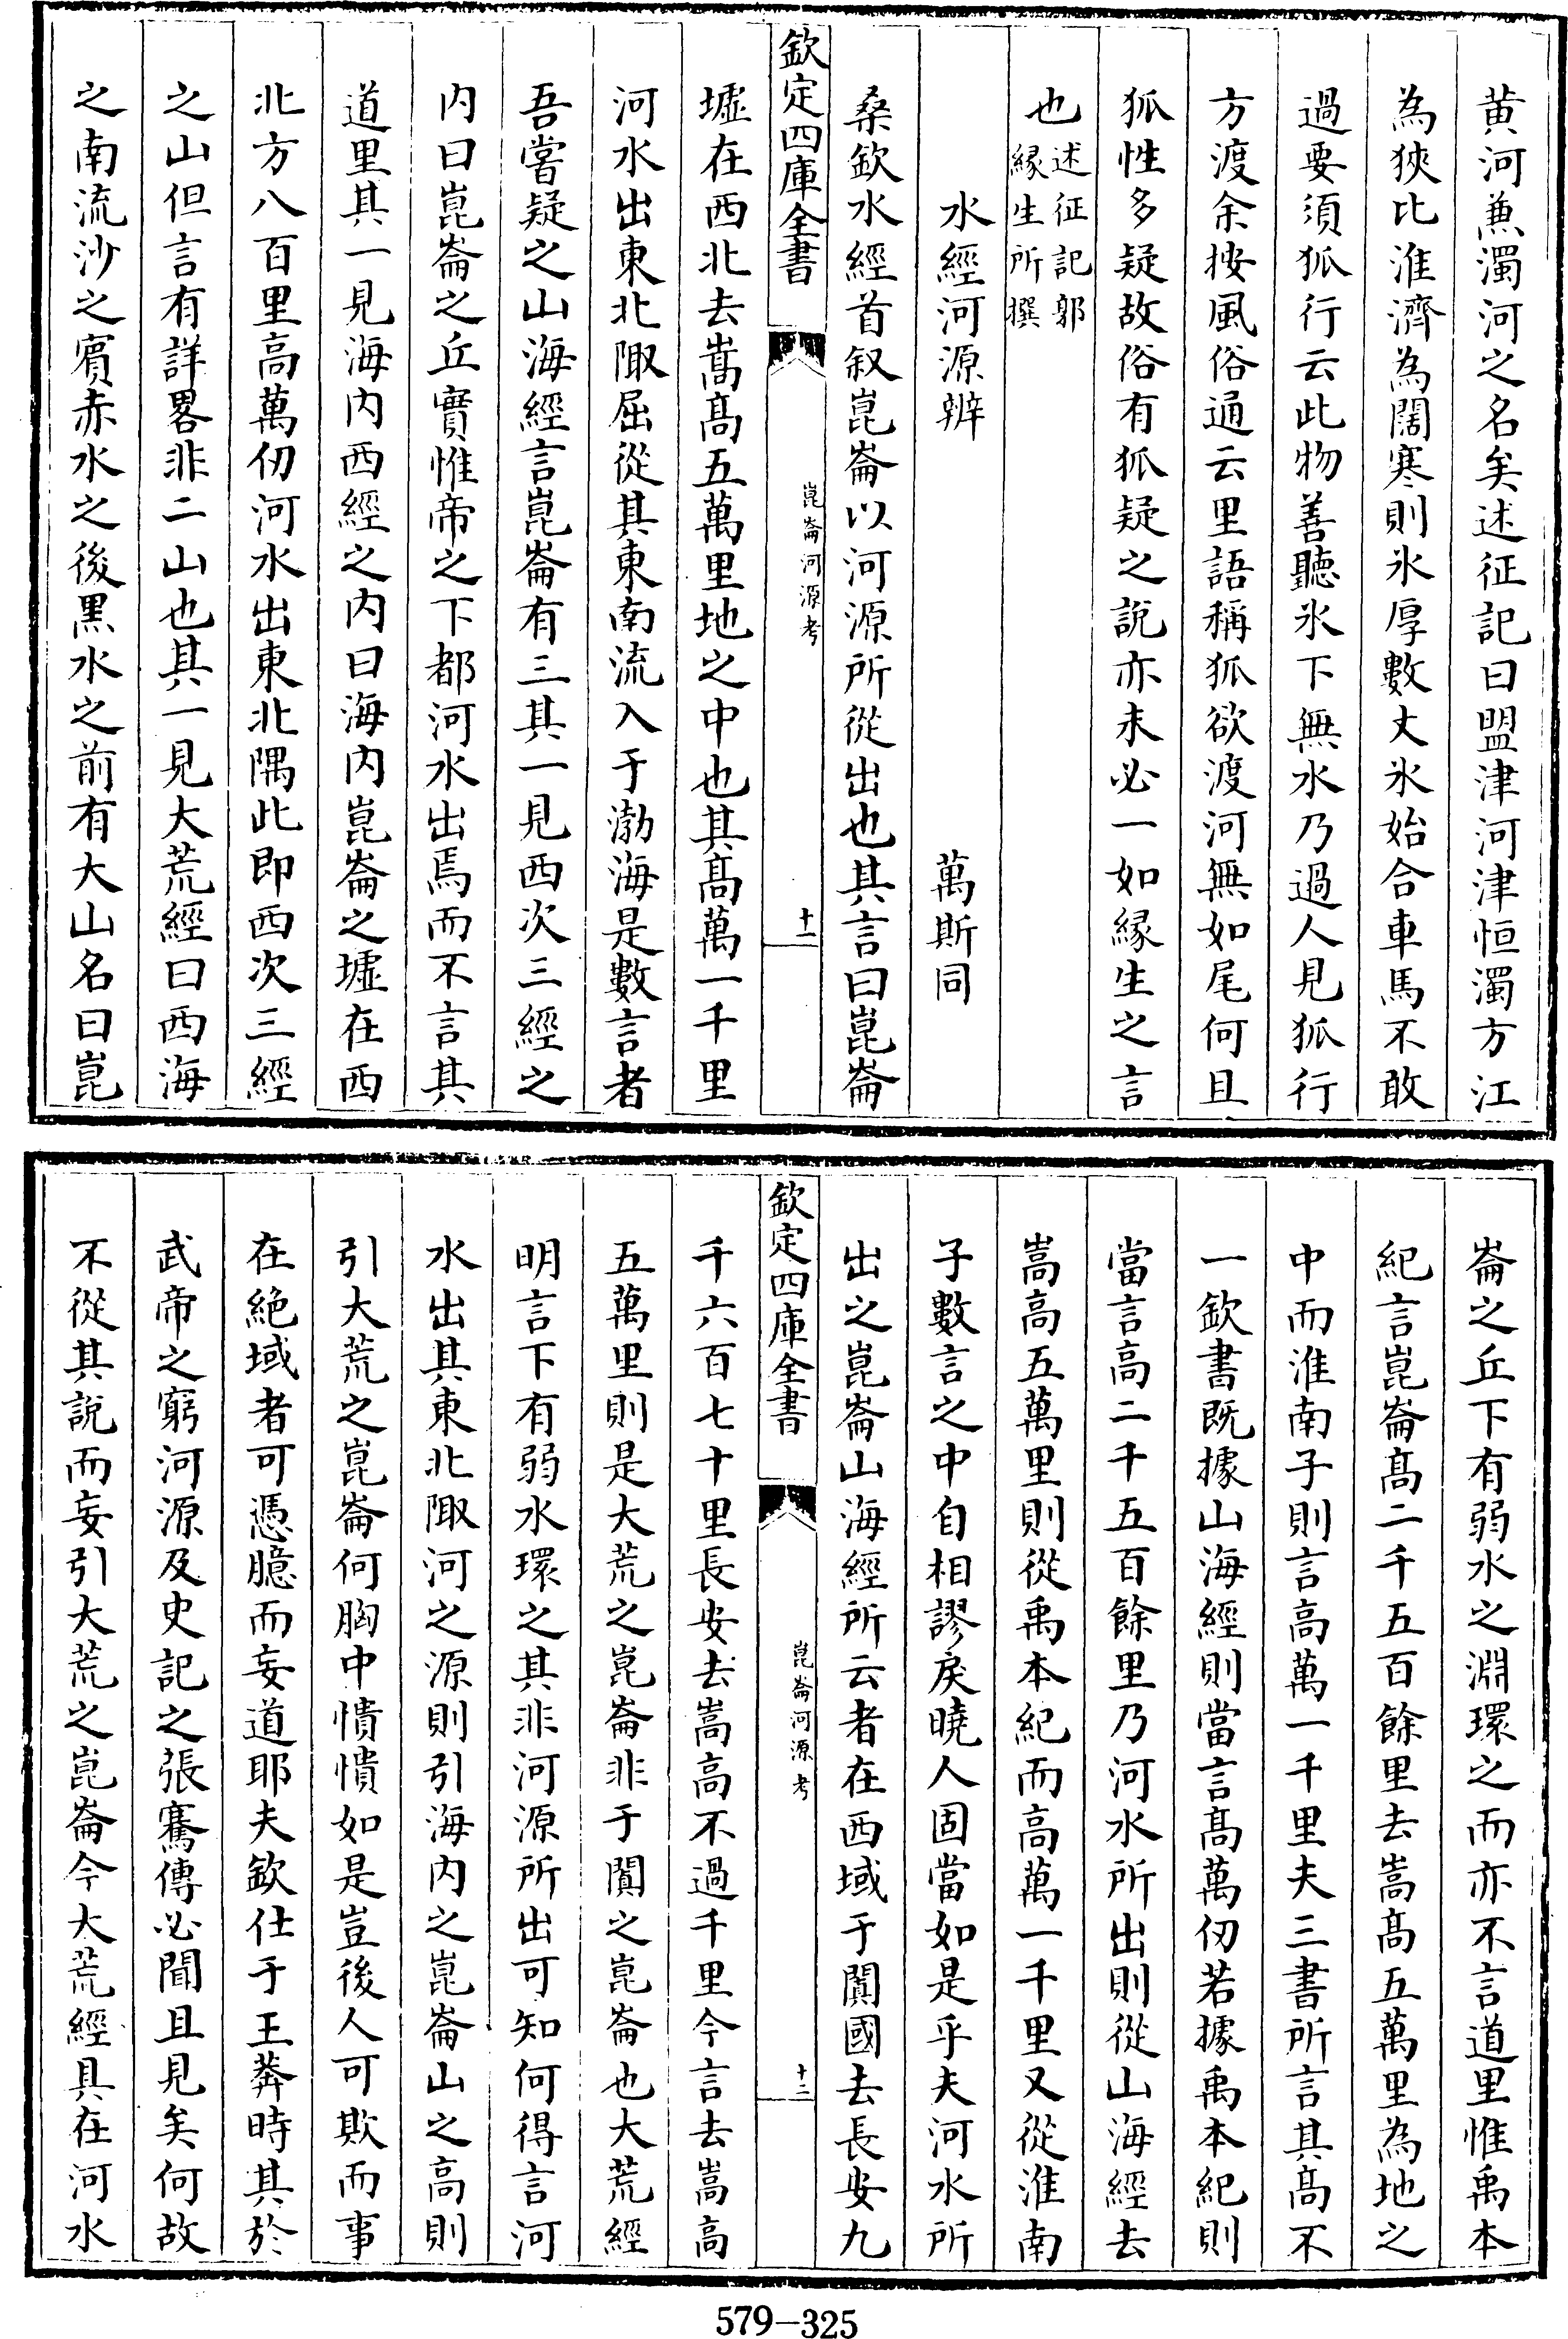 黄河兼濁河之名矣述征記曰盟津河津恒濁方江
為狹比淮濟為闊寒則氷厚數丈氷始合車馬不敢
過要須狐行云此物善聽氷下無水乃過人見狐行
方渡余按風俗通云里語稱狐欲渡河無如尾何且
狐性多疑故俗有狐疑之說亦未必一如緣生之言
也述征記郭緣生所撰
水經河源辨
萬斯同
桑欽水經首叙崑崙以河源所從出也其言曰崑崙
欽定四庫全書
崑崙河源考
十一
墟在西北去嵩髙五萬里地之中也其髙萬一千里
河水出東北陬屈從其東南流入于渤海是數言者
吾嘗疑之山海經言崑崙有三其一見西次三經之
内曰崑崙之丘實惟帝之下都河水出焉而不言其
道里其一見海内西經之内曰海内崑崙之墟在西
北方八百里高萬仞河水出東北隅此即西次三經
之山但言有詳畧非二山也其一見大荒經曰西海
之南流沙之濱赤水之後黑水之前有大山名曰崑
崙之丘下有弱水之淵環之而亦不言道里惟禹本
紀言崑崙髙二千五百餘里去嵩髙五萬里為地之
中而淮南子則言高萬一千里夫三書所言其髙不
一欽書既據山海經則當言髙萬仞若據禹本紀則
當言高二千五百餘里乃河水所出則從山海經去
嵩高五萬里則從禹本紀而高萬一千里又從淮南
子數言之中自相謬戾曉人固當如是乎夫河水所
出之崑崙山海經所云者在西域于闐國去長安九
欽定四庫全書
崑崙河源考
十二
千六百七十里長安去嵩高不過千里今言去嵩高
五萬里則是大荒之崑崙非于闐之崑崙也大荒經
明言下有弱水環之其非河源所出可知何得言河
水出其東北陬河之源則引海内之崑崙山之高則
引大荒之崑崙何胸中憒憒如是豈後人可欺而事
在絶域者可憑臆而妄道耶夫欽仕于王莽時其於
武帝之窮河源及史記之張騫傳必聞且見矣何故
不從其說而妄引大荒之崑崙今大荒經具在河水
579-325